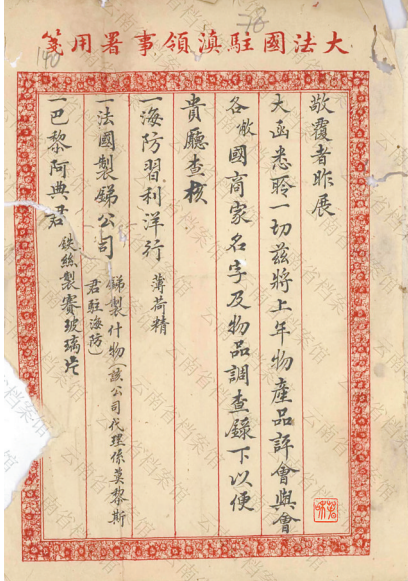 大法國駐滇領事署用箋
敬覆者昨展
大函悉聆一切兹將上年物產品評會與會
各敝國商家名字及物品調查錄下以便
貴廳查核
一海防習利洋行 薄荷精
一法國製銻公司 銻製什物(該公司代理係莫黎斯
君駐海防)
一巴黎阿典君 鉄絲製賽玻璃片
云南省档案馆